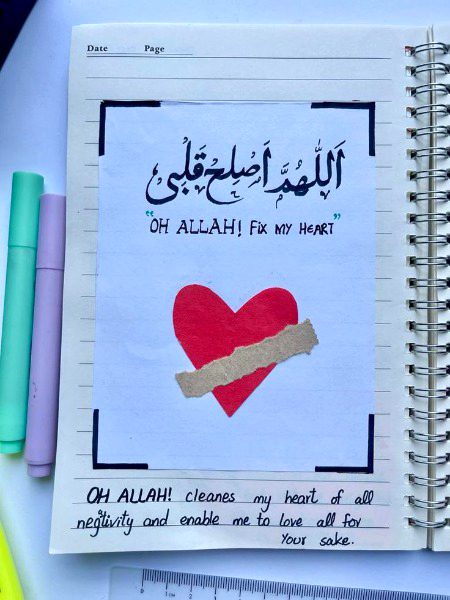 Date Page
اَللّٰهُمَّ اَصْلِحْ قَلْبِى
"OH ALLAH! FIX MY HEART"
OH ALLAH! cleanes my heart of all
negitivity and enable me to love all for
your sake.
0 1CM 2 3 4 5 6 7 8